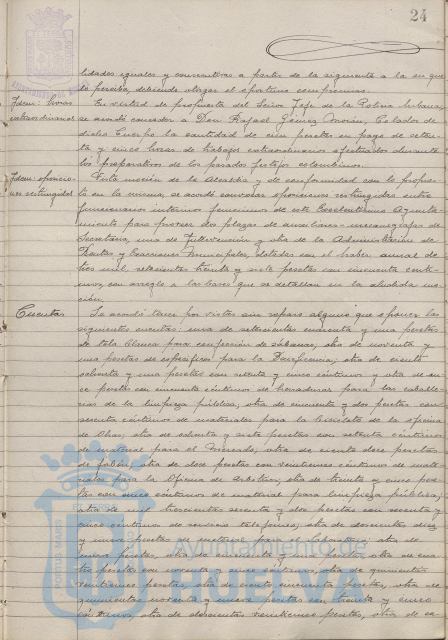 24
lidades iguales y consecutivas a partir de la siguiente a la en que
lo perciba, debiendo otorgar el oportuno compromiso.
Idem: horas
extraordinarias
En virtud de propuesta del Señor Jefe de la Policía Urbana,
se acordó conceder a Don Rafael Gómez Morián, Celador de
dicho Cuerpo la cantidad de cien pesetas en pago de seten-
ta y cinco horas de trabajos extraordinarios efectuados durante
los preparativos de los pasados festejos colombinos.
Idem: oposicio-
nes restringidas
Vista moción de la Alcaldía y de conformidad con lo propues-
to en la misma, se acordó convocar oposiciones restringidas entre
funcionarios internos femeninos de este Excelentísimo Ayunta-
miento para proveer dos plazas de auxiliares-mecanógrafas de
Secretaría, una de Intervención y otra de la Administración de
Rentas y Exacciones Municipales, dotadas con el haber anual de
tres mil setecientas treinta y siete pesetas con cincuenta cénti-
mos, con arreglo a las bases que se detallan en la aludida mo-
ción.
Cuentas
Se acordó tener por vistas sin reparo alguno que oponer las
siguientes cuentas: una de setecientas cuarenta y una pesetas
de tela blanca para confección de sábanas, otra de noventa y
una pesetas de específicos para la Beneficencia, otra de ciento
ochenta y una pesetas con setenta y cinco céntimos y otra de on-
ce pesetas con cincuenta céntimos de herraduras para las caballe-
rías de la limpieza pública, otra de cincuenta y dos pesetas con
sesenta céntimos de materiales para la bicicleta de la oficina
de Obras, otra de ochenta y siete pesetas con setenta céntimos
de material para el Mercado, otra de ciento doce pesetas
de otra de doce pesetas con veinticinco céntimos de mate-
riales para la Oficina de Arbitrios, otra de treinta y cinco pese-
tas con cinco céntimos de material para limpieza pública,
otra de mil doscientas sesenta y dos pesetas con noventa y
cinco céntimos de servicio telefónico, otra de doscientas diez
y nueve pesetas de material para el Laboratorio, otra de
nueve pesetas, otra de
pesetas con noventa y cinco céntimos, otra de quinientas
veintiuna pesetas, otra de ciento cincuenta pesetas, otra de
quinientas noventa y nueve pesetas con treinta y cinco
céntimos, otra de doscientas veinticinco pesetas, otra de
Ayuntamiento de
HUELVA